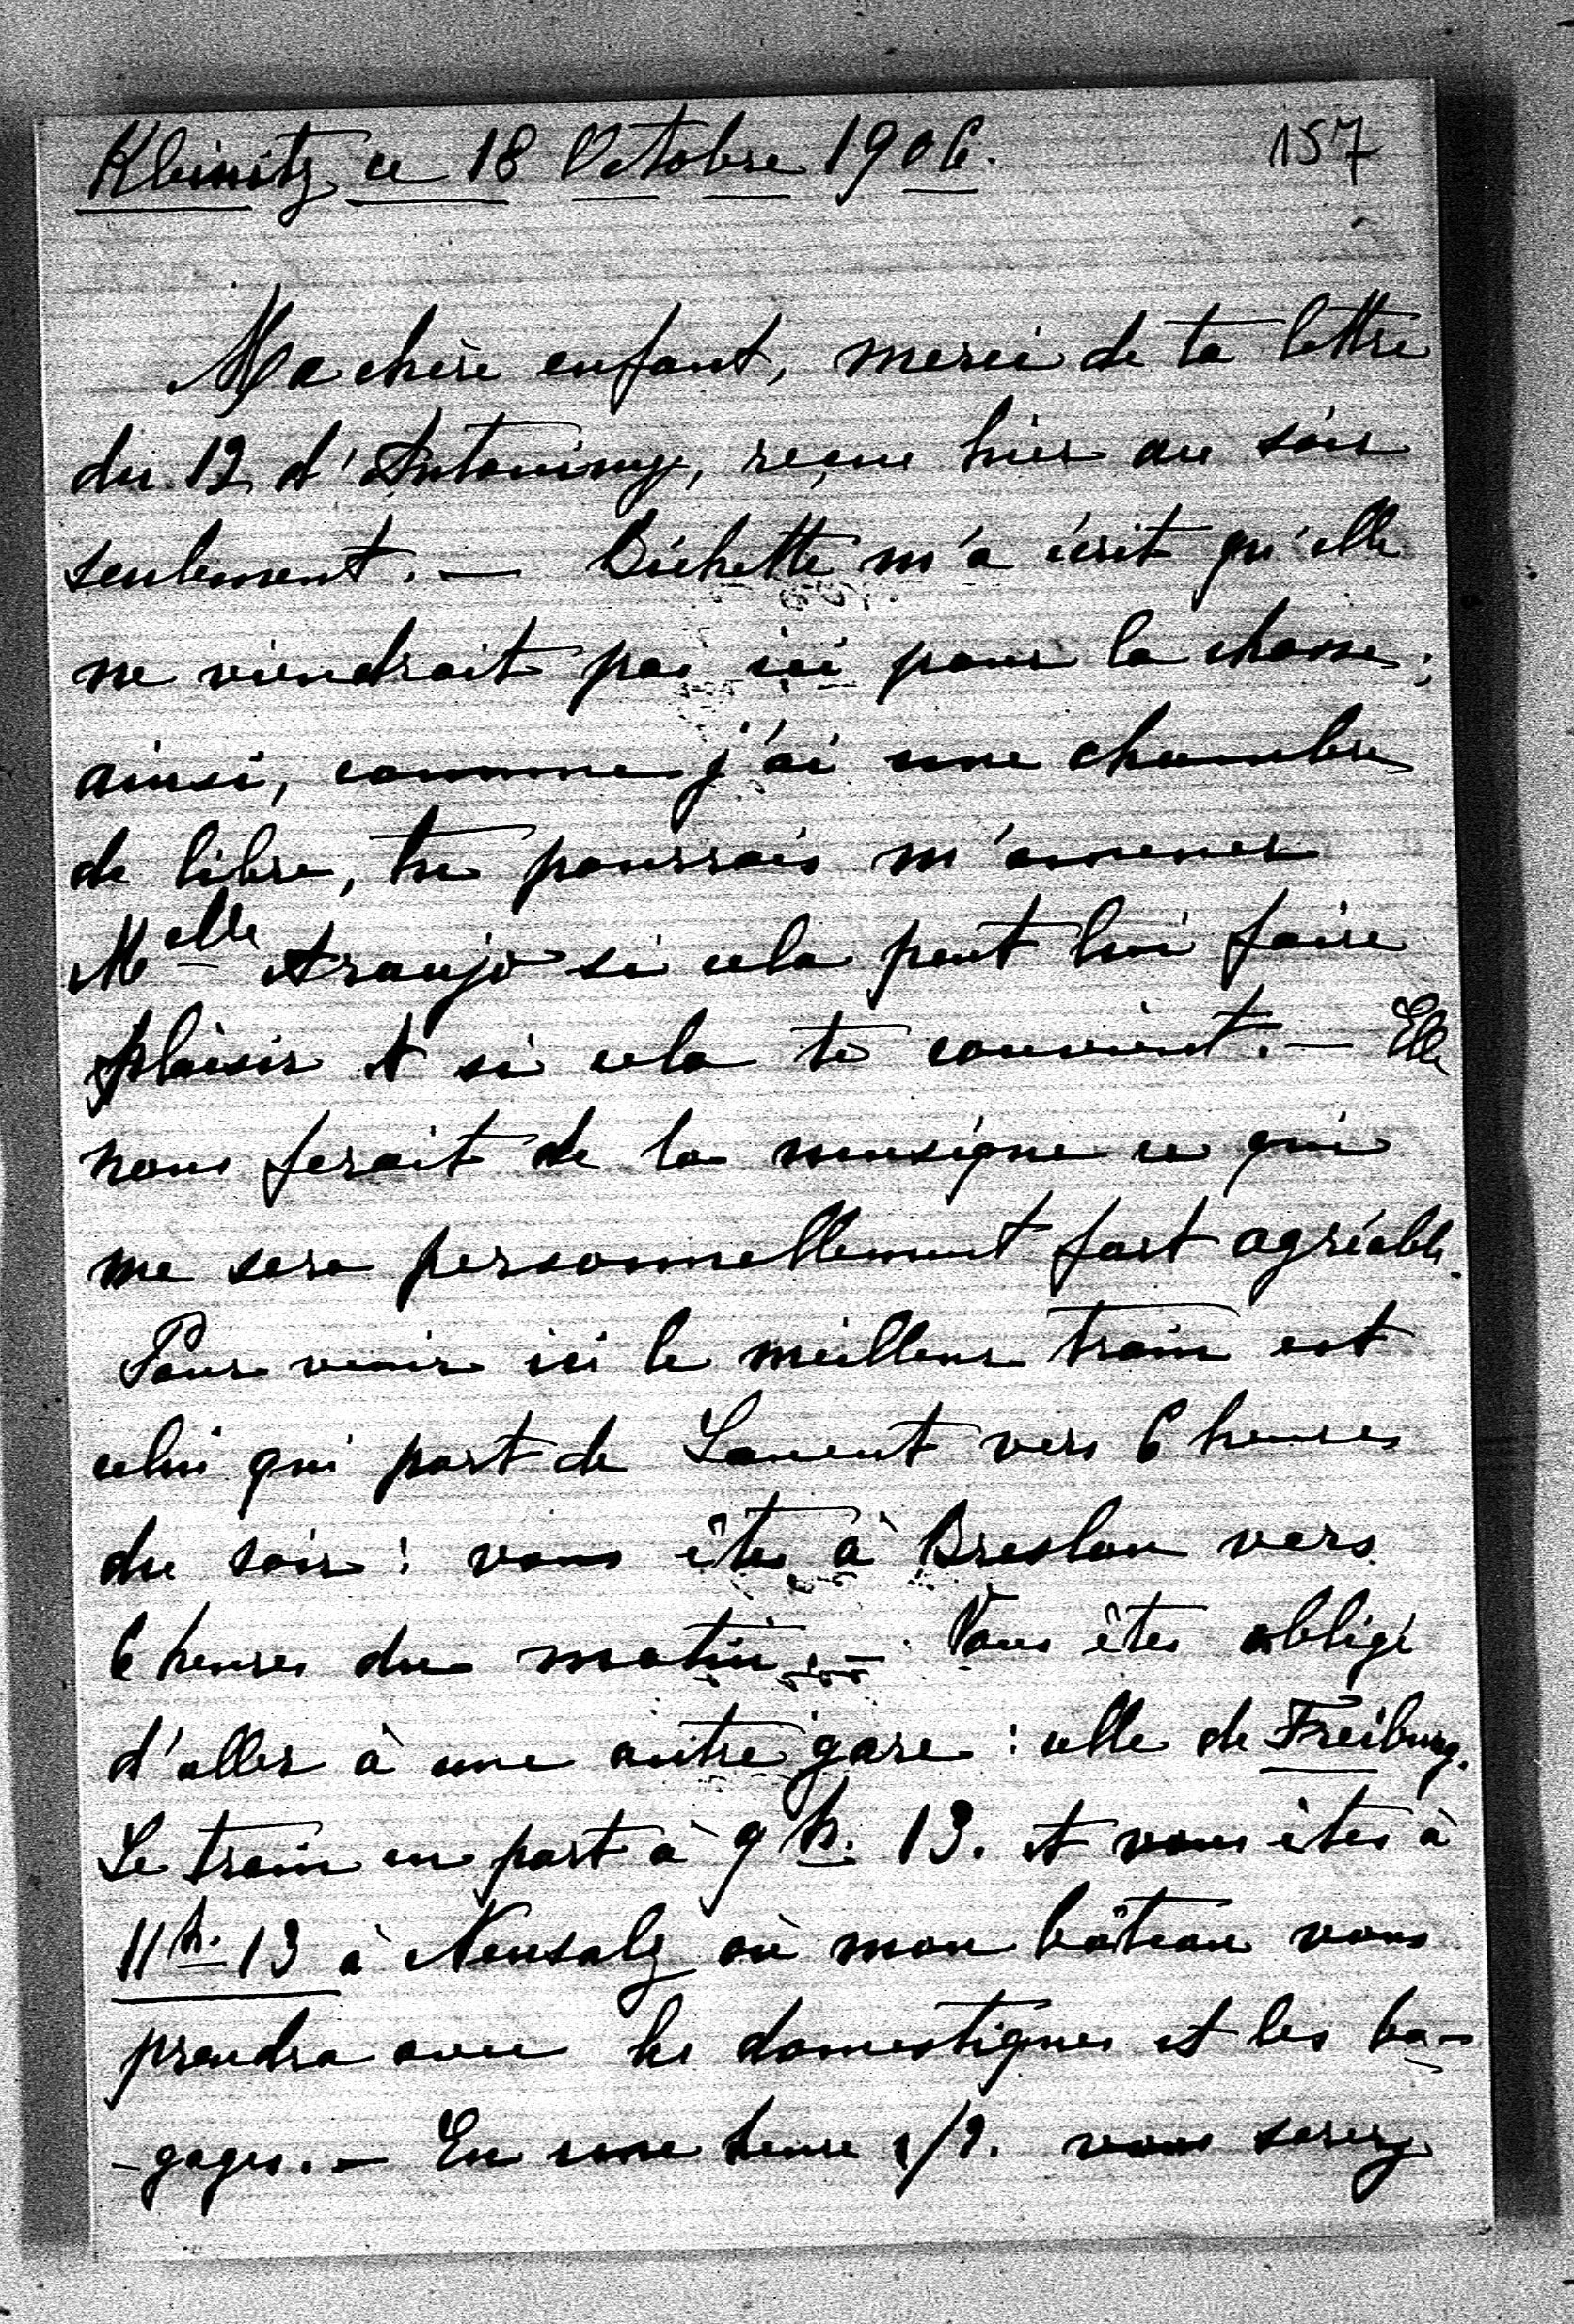 Kleinitz ce 18 Octobre 1906. 157
Ma chère enfant, merci de ta lettre
du 12 d'Antoniny, reçue hier au soir
seulement. — Bichette m'a écrit qu'elle
ne viendrait pas ici pour la chasse;
ainsi, comme j'ai une chambre
de libre, tu pourrais m'amener
Melle Araujo si cela peut lui faire
plaisir et si cela te convient. — Elle
nous ferait de la musique ce qui
me sera personnellement fort agréable.
Pour venir ici le meilleur train est
celui qui part de Lancut vers 6 heures
du soir: vous êtes à Breslau vers
6 heures du matin. — Vous êtes obligé
d'aller à une autre gare: celle de Freiburg.
Le train en part à 9 h. 13. et vous êtes à
11 h. 13 à Neusalz où mon bâteau vous
prendra avec les domestiques et les ba-
-gages. — En une heure 1/2. vous serez